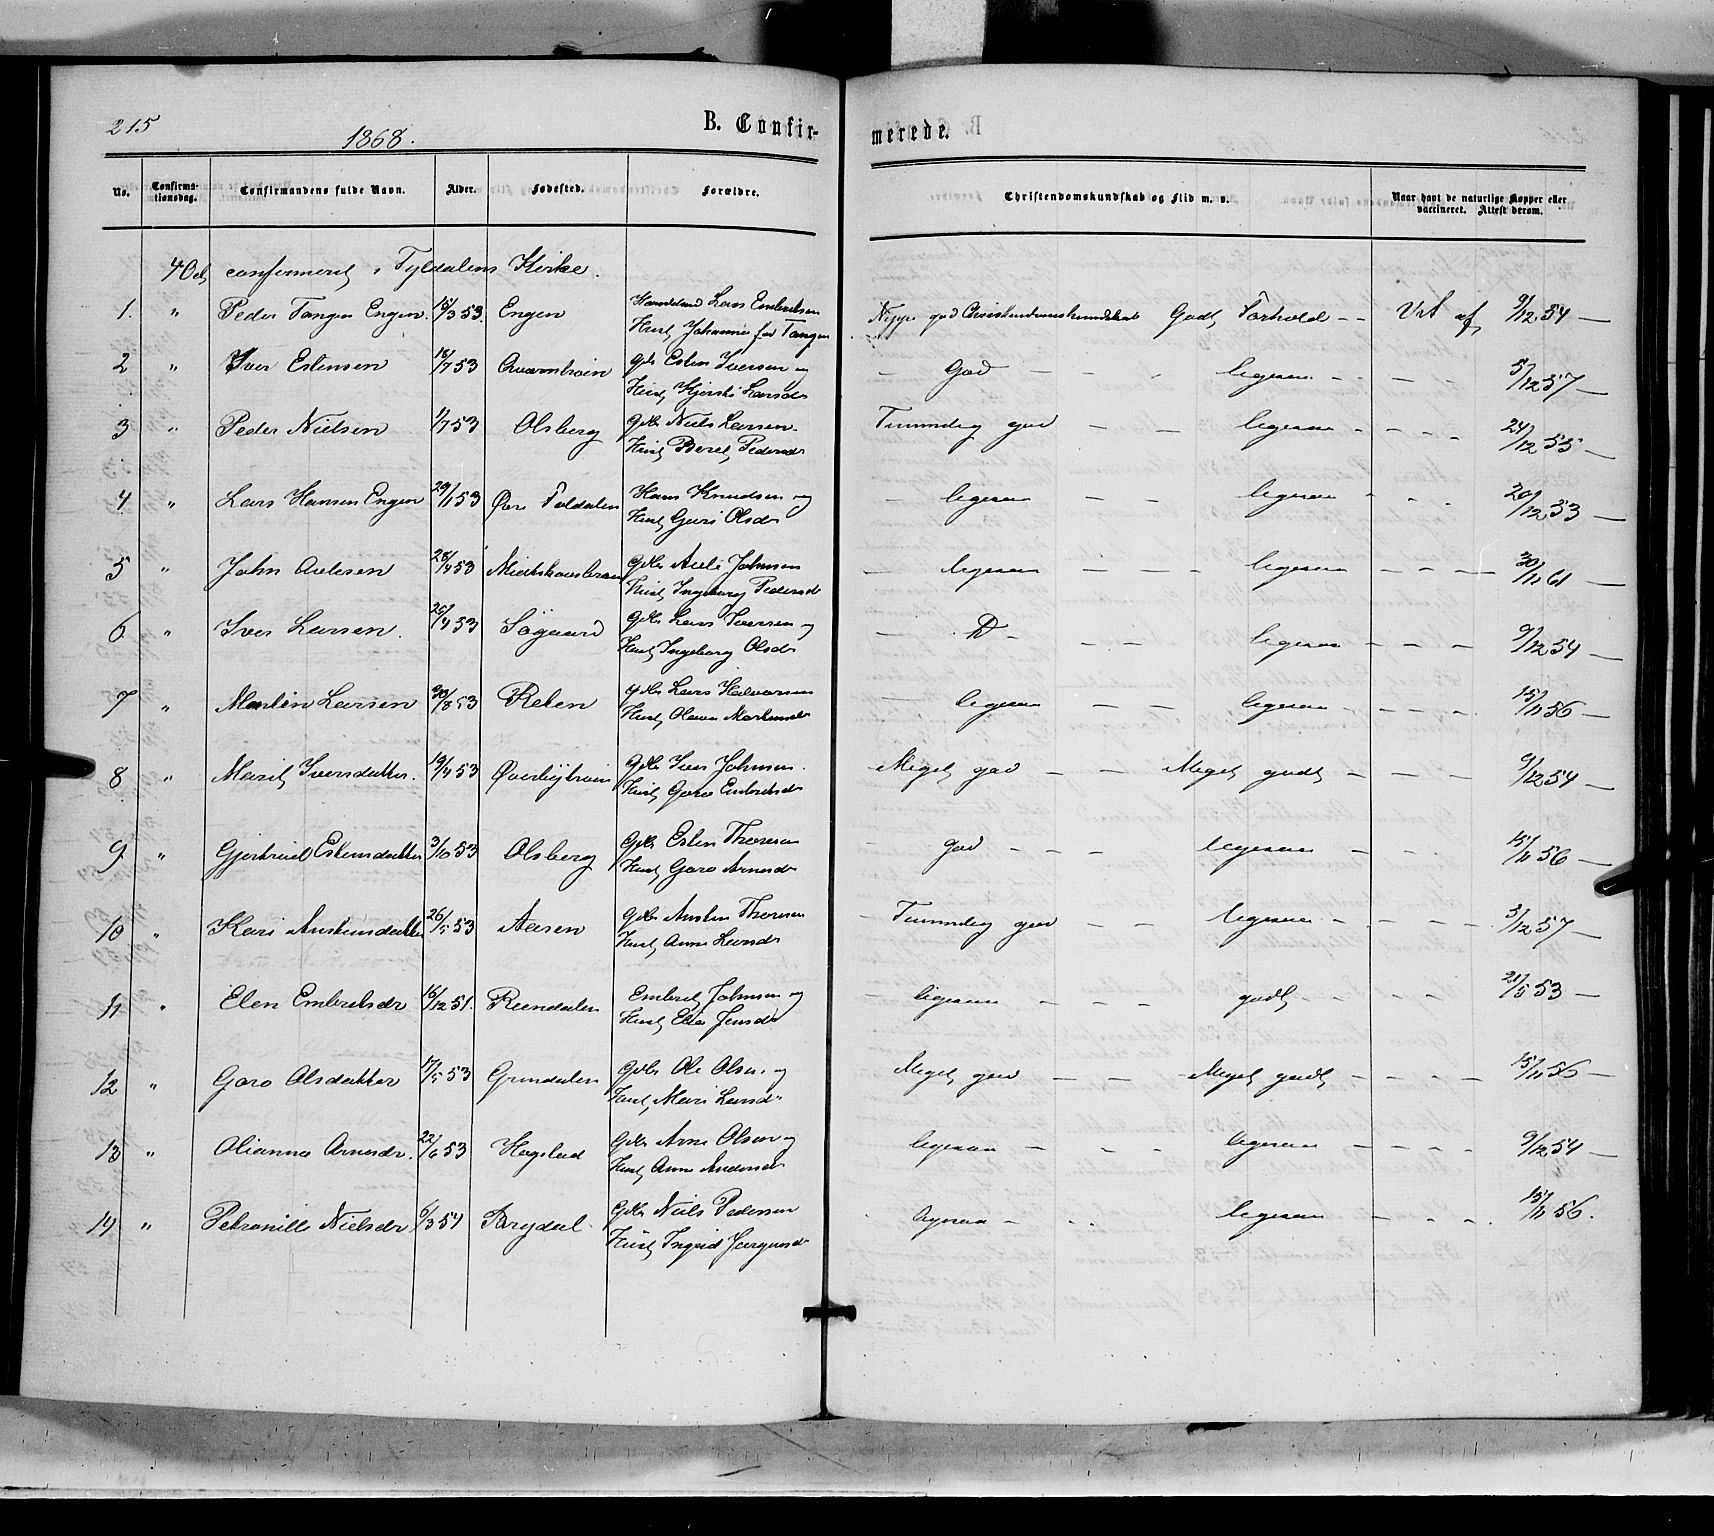 215
1868.
B. Confirmerede.
No. Confirmationsdag. Confirmandens fulde Navn. Alder. Fødested. Forældre. Christendomskundskab og Flid m. v. Naar havt de naturlige Kopper eller vaccineret. Attest derom.
4 Oct confirmeret i Tyldalens Kirke.
1. " Peder Tangen Engen. 15/3 53. Engen Lars Embretsen Godt Forhold - - Vat af 9/12 54 -
Hust Johanne Tangen
2 " Iver Estensen 18/7 53 Gbr Esten Iversen og - God - - - ligesaa - - - - 5/12 57 -
Hust Kjersti Larsdr
3 " Peder Nielsen 1/7 53 Olsberg Gbr Niels Larsen. Temmelig god - - ligesaa - - - - 24/12 55 -
Hust Beret Pedersdr
4 " Lars Hansen Engen 29/1 53 Øvre Hans Knudsen og - ligesaa - - ligesaa - - - 20/12 53 -
Hust Guri Olsdr
5 " John Aulesen 28/4 53 Gbr Aule Johnsen - ligesaa - - ligesaa - - - - 30/11 61 -
Hust Ingeborg Pedersdr
6 " Iver Larsen. 26/4 53 Søgaard Gbr Lars Iversen og - D - - - ligesaa - - - 9/12 54 -
Hust Ingeborg Olsdr
7 " Martin Larsen 30/8 53 Gbr Lars Halvorsen ligesaa - - - ligesaa - - - - 15/11 56 -
Hust Martinsdr
8 " Marit Iversdatter. 19/4 53 Gbr Iver Johnsen. - Meget god - - Meget godt - - - 9/12 54 -
Hust Goro Embretsdr
9 " Gjertrud Estensdatter 3/10 53 Olsberg Gbr Esten Thoresen - god - - - ligesaa - - - 15/11 56 -
Hust Goro Arnesdr
10 " Kari Austensdatter 26/5 53 Aasen Gbr Austen Thoresen - Temmelig god - - ligesaa - - - - 5/12 57 -
Hust Anne Larsdr
11 " Elen Embretsdr 16/12 51. Embret Johnsen og - ligesaa - - - godt - - - - 21/5 53 -
Hust Jensdr
12 " Goro Olsdatter 17/5 53 Gbr Ole Olsen og Meget god - - - Meget godt - - - - 15/11 56 -
Hust Mari Larsd"
13 " Olianna Arnesdr. 22/6 53 Hogstad Gbr Arne Olsen og ligesaa - - - ligesaa - - - - 9/12 54 -
Hust Anne Andersdr
14 " Petronille Nielsdr 6/3 54 Brydal Gbr Niels Pedersen ligesaa - - - ligesaa - - - - 15/11 56.
Hust Ingrid